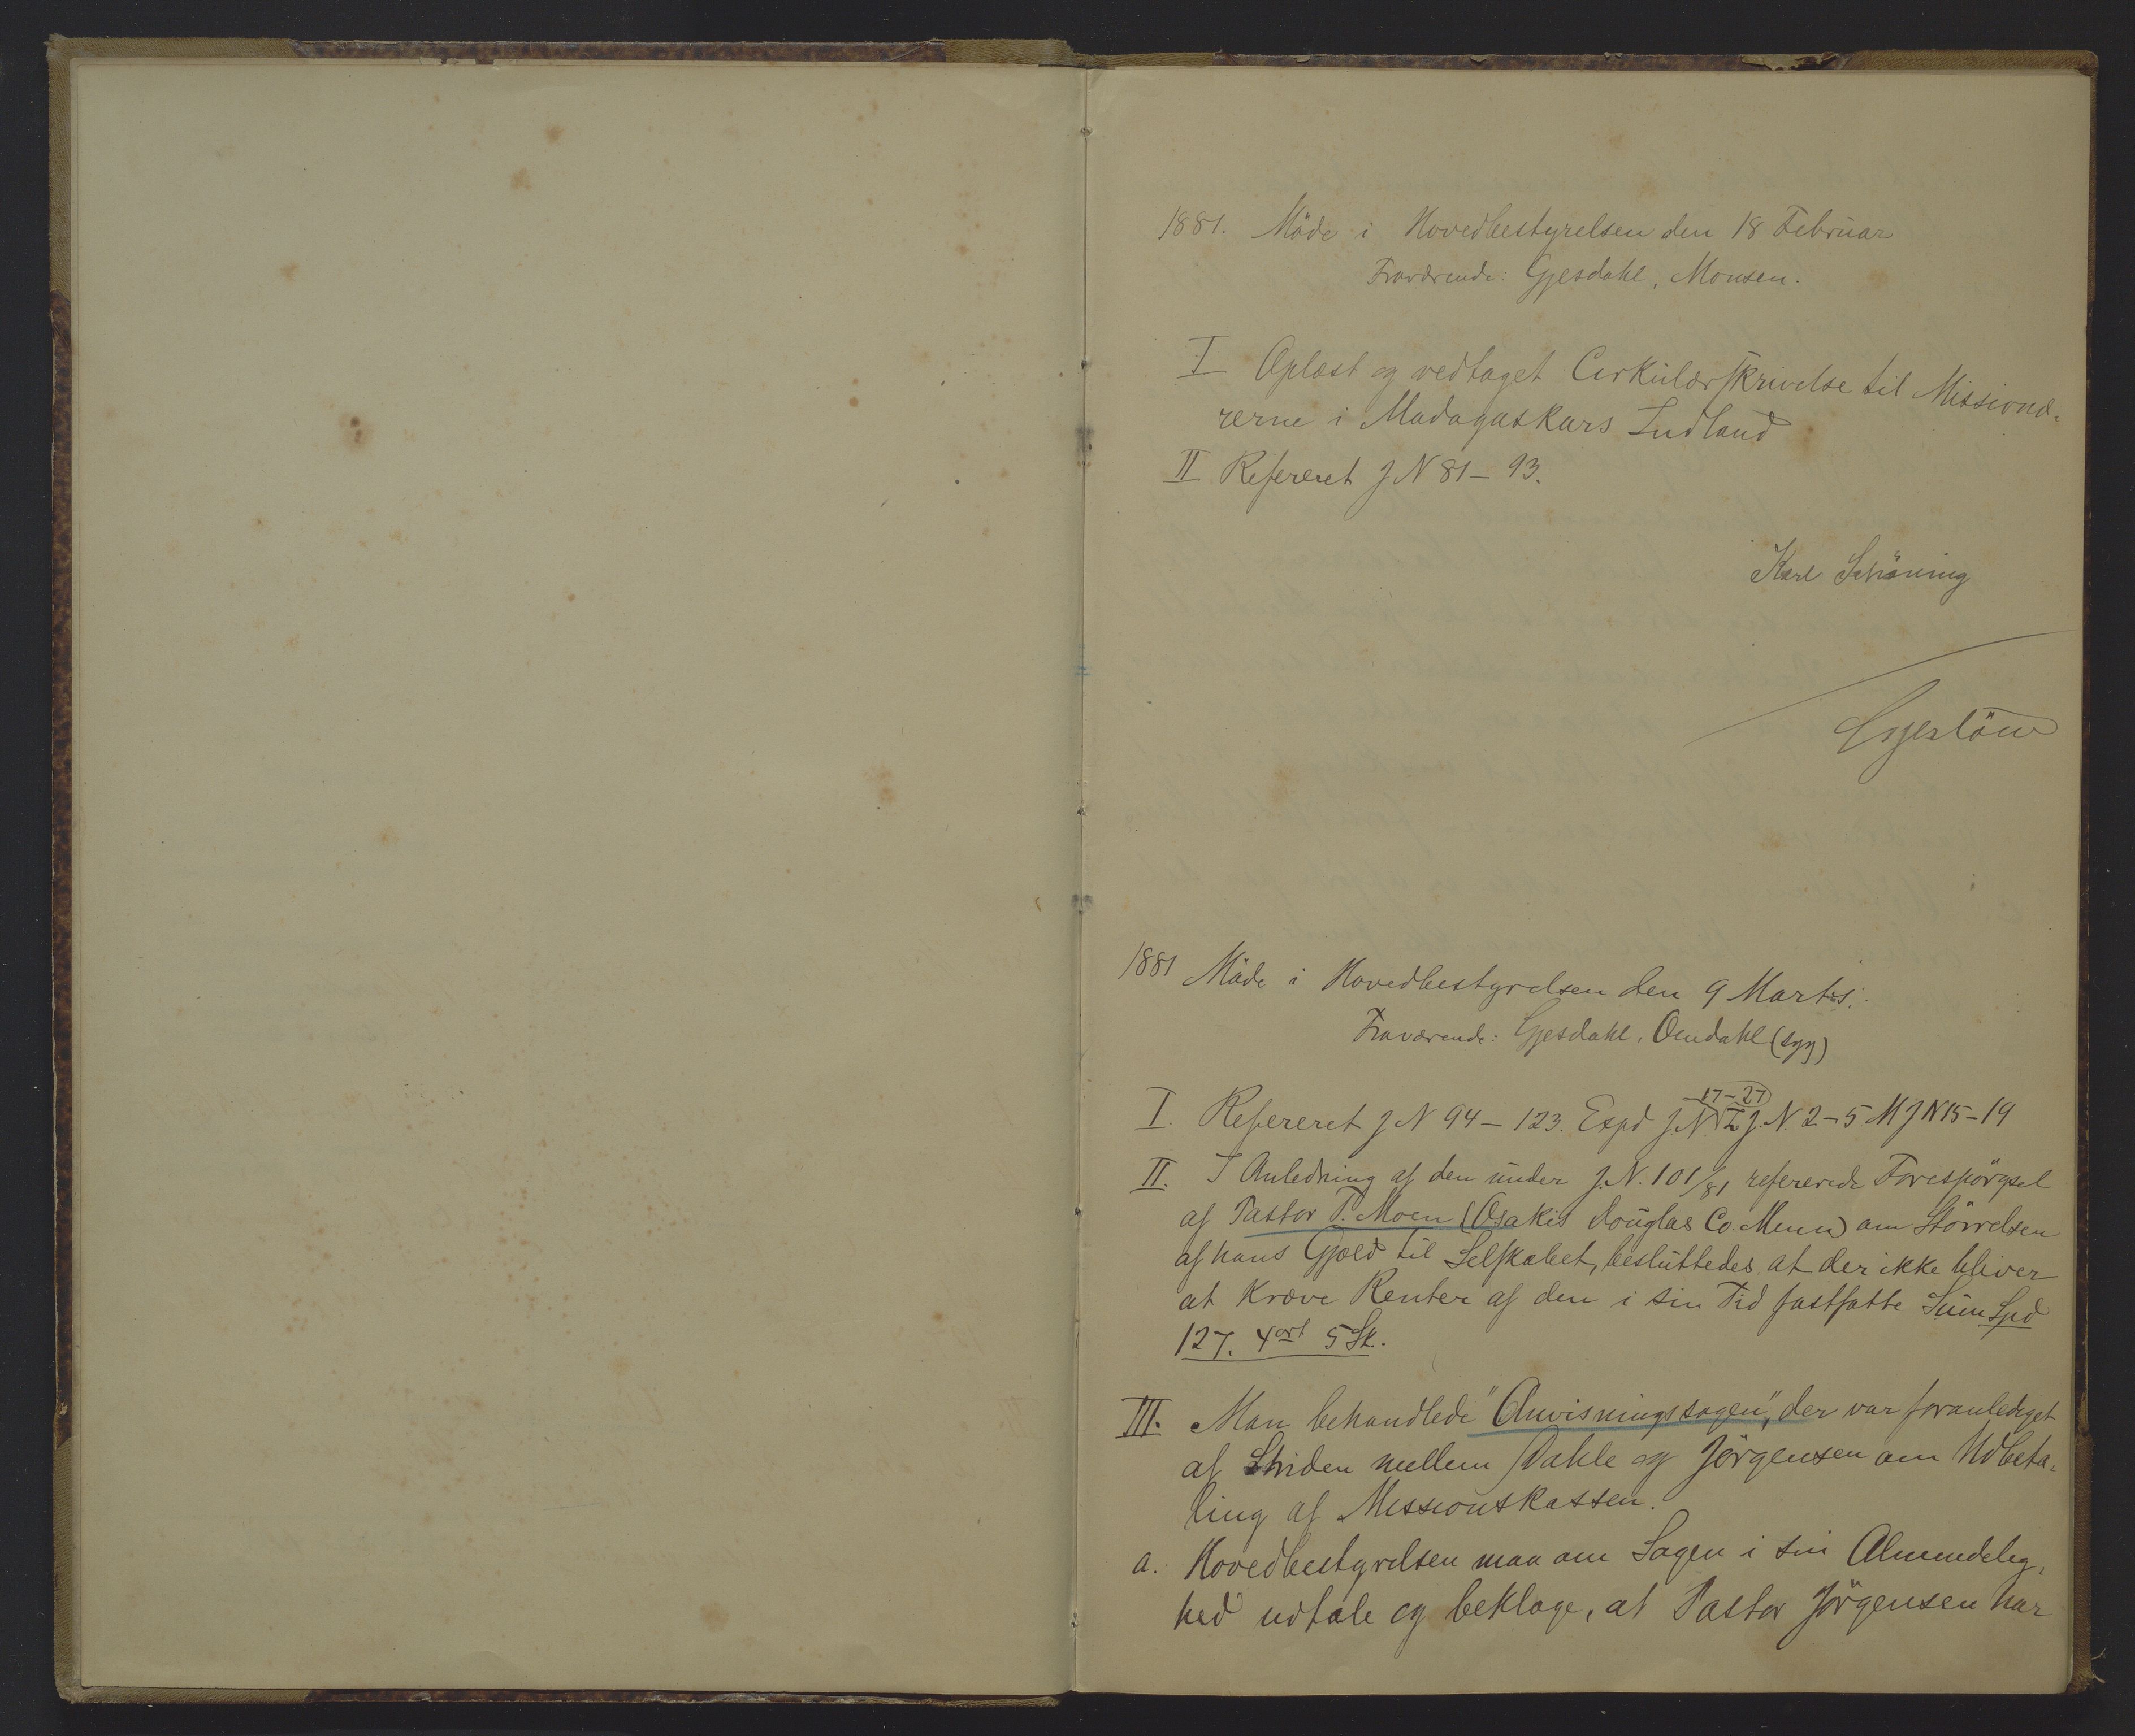 1881. Möde i Hovedbestyrelsen den 18 Februar
Fraværende: Gjesdahl, Monsen.
I Oplæst og vedtaget Cirkulærskrivelse til Missionæ-
rerne i Madagaskars Indland
II Refereret J N 81 - 93.
Karl Schöning
1881 Möde i Hovedbestyrelsen den 9 Marts.
Fraværende: Gjesdahl, Omdahl (syg)
17-27
I. Refereret J N 94 - 123. Expd J.N. I J. N. 2-5 M J N 15-19
II. I Anledning af den under J. N. 101/81 refererede Forespörgsel
af Pastor T. Moen (Osakis Douglas Co. Minn) om Störrelsen
af hans Gjæld til Selskabet, besluttedes at der ikke bliver
at kræve Renter af den i sin Tid fastsatte Sum Spd
127. 4 ort 5 Sk.
III. Man behandlede "Anvisningssagen", der var foranlediget
af Striden mellem Dahle og Jörgensen om Udbeta-
ling af Missionskassen.
a. Hovedbestyrelsen maa om Sagen i sin Almindelig-
hed udtale og beklage, at Pastor Jörgensen har